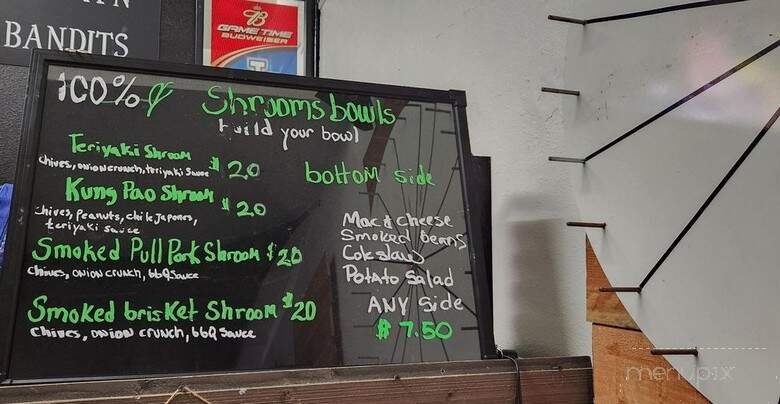 BANDITS
GAME TIME
BUDWEISER
100% Shrooms bowls
build your bowl
Teriyaki Shroom $20
chives, onion crunch, teriyaki Sauce
Kung Pao Shroom $20
chives, Peanuts, chile Japones,
teriyaki sauce
Smoked Pull Pork Shroom $20
chives, onion crunch, bbQ sauce
Smoked brisket Shroom $20
chives, onion crunch, bbQ Sauce
bottom side
Mac & cheese
Smoked beans
Coleslaw
Potato Salad
ANY Side
$ 7.50
menupix